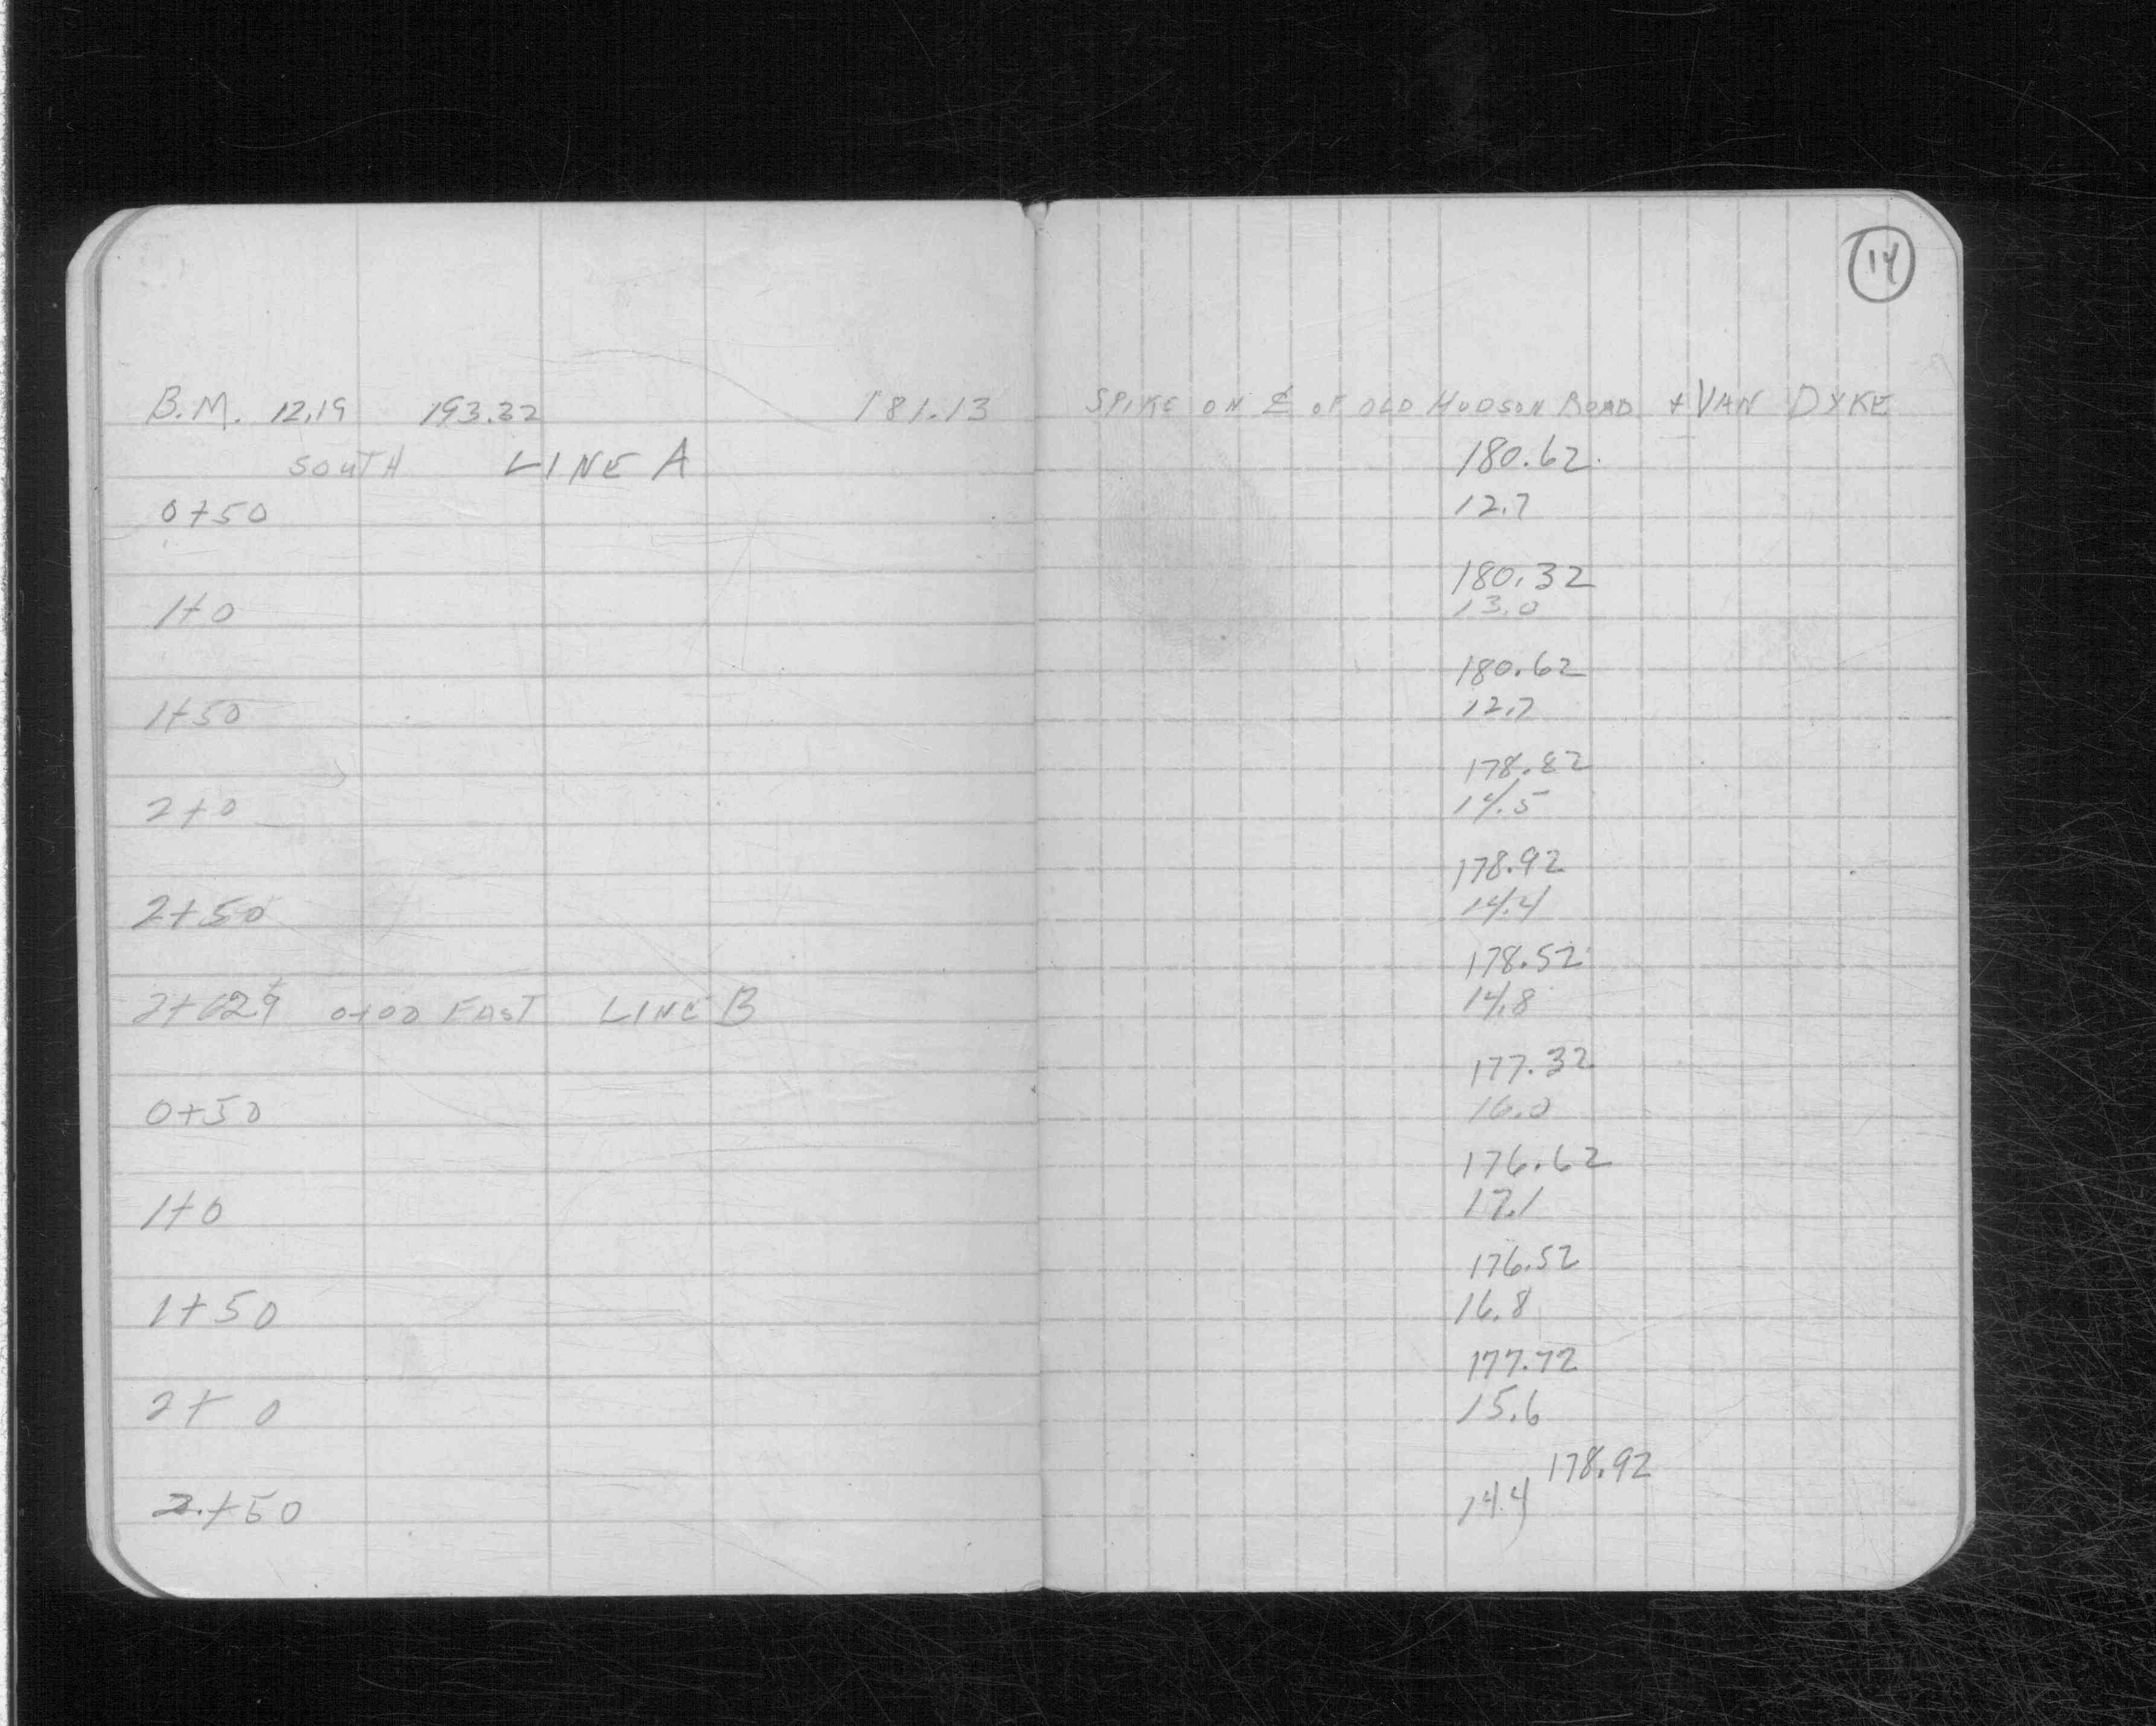 14
B.M. 12.19 193.32 181.13 SPIKE ON ℄ OF OLD HUDSON ROAD + VAN DYKE
SOUTH LINE A 180.62
0+50 12.7
180.32
1+0 13.0
180.62
1+50 12.7
178.82
2+0 14.5
178.92
2+50 14.4
178.52
0+00 EAST LINE B 14.8
177.32
0+50 16.0
176.62
1+0 17.1
176.52
1+50 16.8
177.72
2+0 15.6
178.92
2+50 14.4